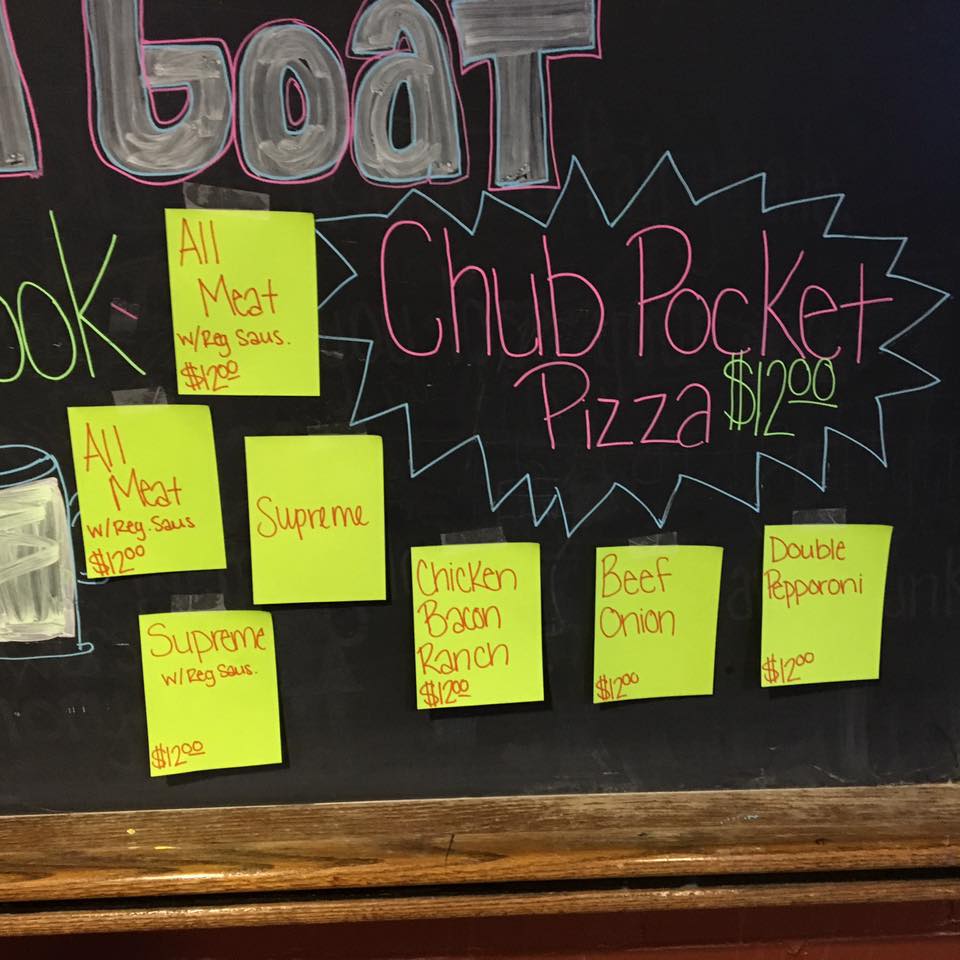 Goat
ook
All
Meat
w/Reg Saus.
$12.00
Chub Pocket
Pizza $12.00
All
Meat
w/Reg.Saus
$12.00
Supreme
Supreme
w/Reg Saus.
$12.00
Chicken
Bacon
Ranch
$12.00
Beef
Onion
$12.00
Double
Pepporoni
$12.00